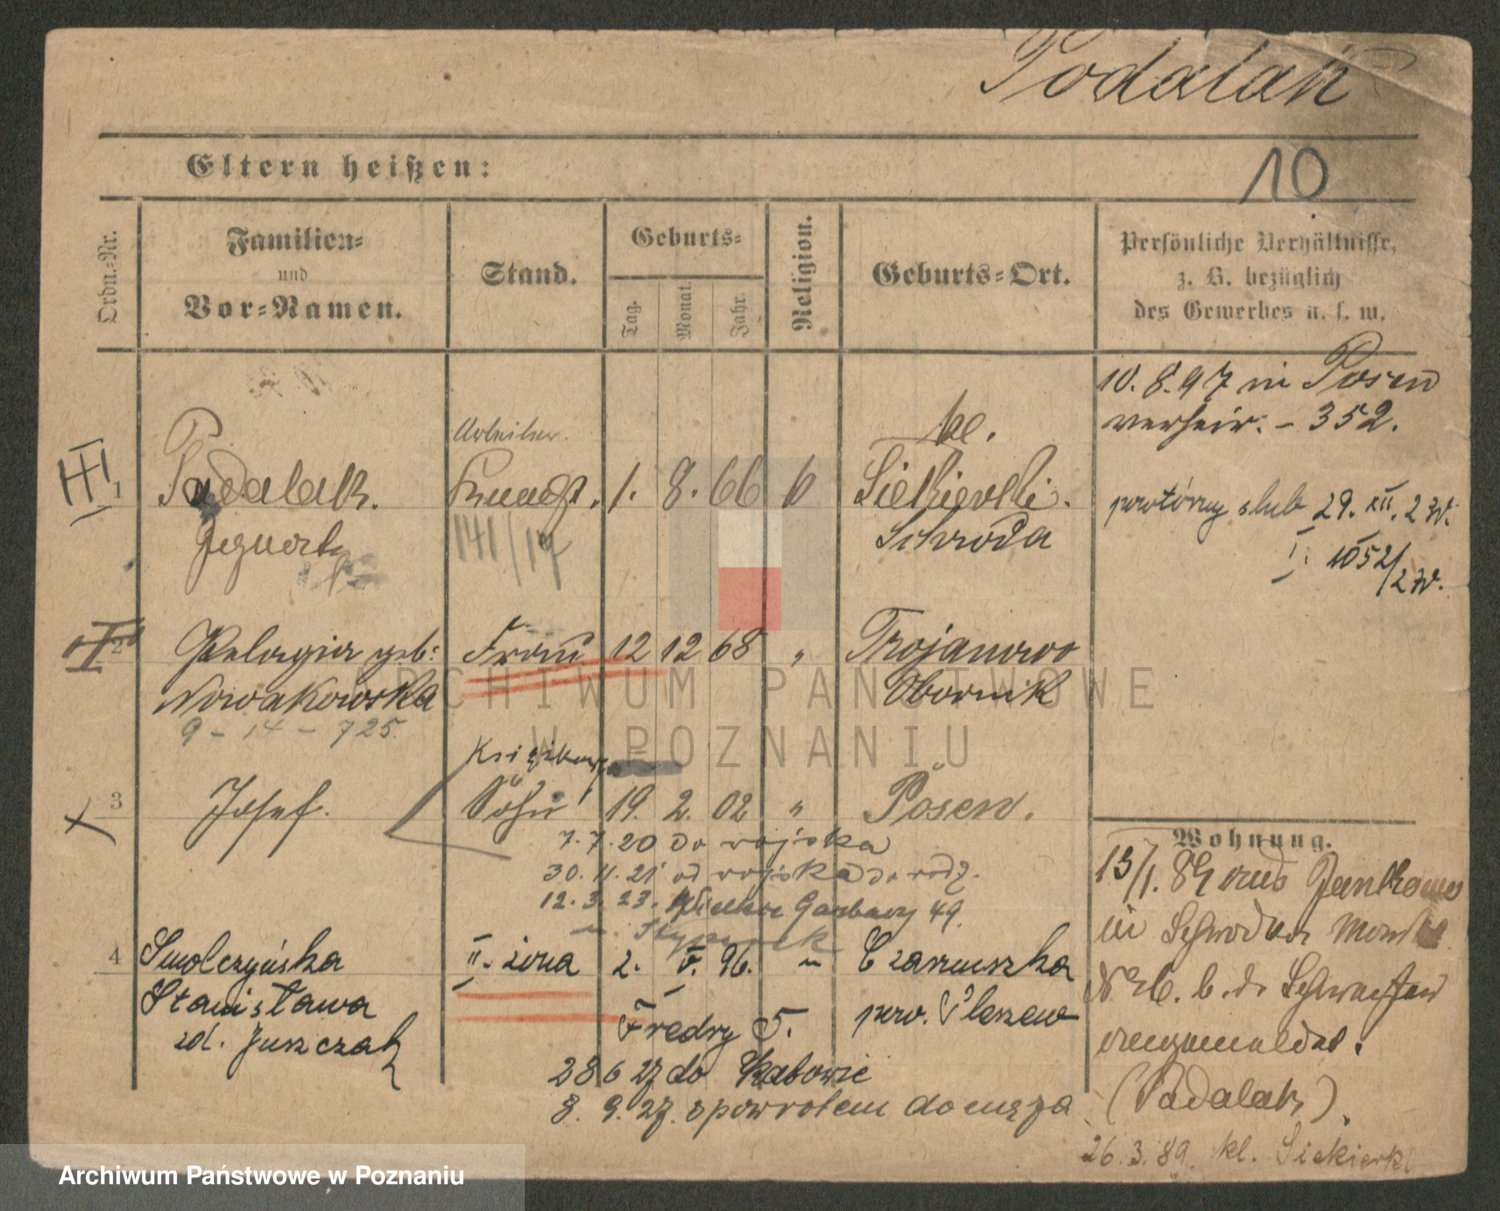 Podalak
10
Eltern heißen:
Ordn.-Nr.
Familien-
und
Vor-Namen.
Stand.
Geburts-
Tag.
Monat.
Jahr.
Religion.
Geburts-Ort.
Persönliche Verhältnisse,
z. B. bezüglich
des Gewerbes u. s. w.
10. 8. 97 in Posen
verheir. - 352.
1
Podalak.
Arbeiter.
1. 8. 66
kl.
Siekierki.
Schroda
powtórny ślub 29. XII. 27r.
I. 1052/27r.
2
Pelagia geb:
Nowakowska
Frau 12 12 68 "
Trojanowo
Obornik
9 - 14 - 725.
3
Josef.
Sohn 19. 2. 02 "
Posen.
7. 7. 20 do wojska
30. 11. 21 od wojska do rodz.
12. 3. 23. Wielkie Garbary 49.
4
Smolczyńska
Stanisława
zd. Juszczak
II. żona 2. V. 96. "
Czarnuszka
pow. Pleszew
Fredry 5.
28 6 27 do Katowic
8. 9. 27. z powrotem do męża
Wohnung.
13/1. 89
in
(Podalak).
26. 3. 89. kl. Siekierki
ARCHIWUM PAŃSTWOWE
W POZNANIU
Archiwum Państwowe w Poznaniu